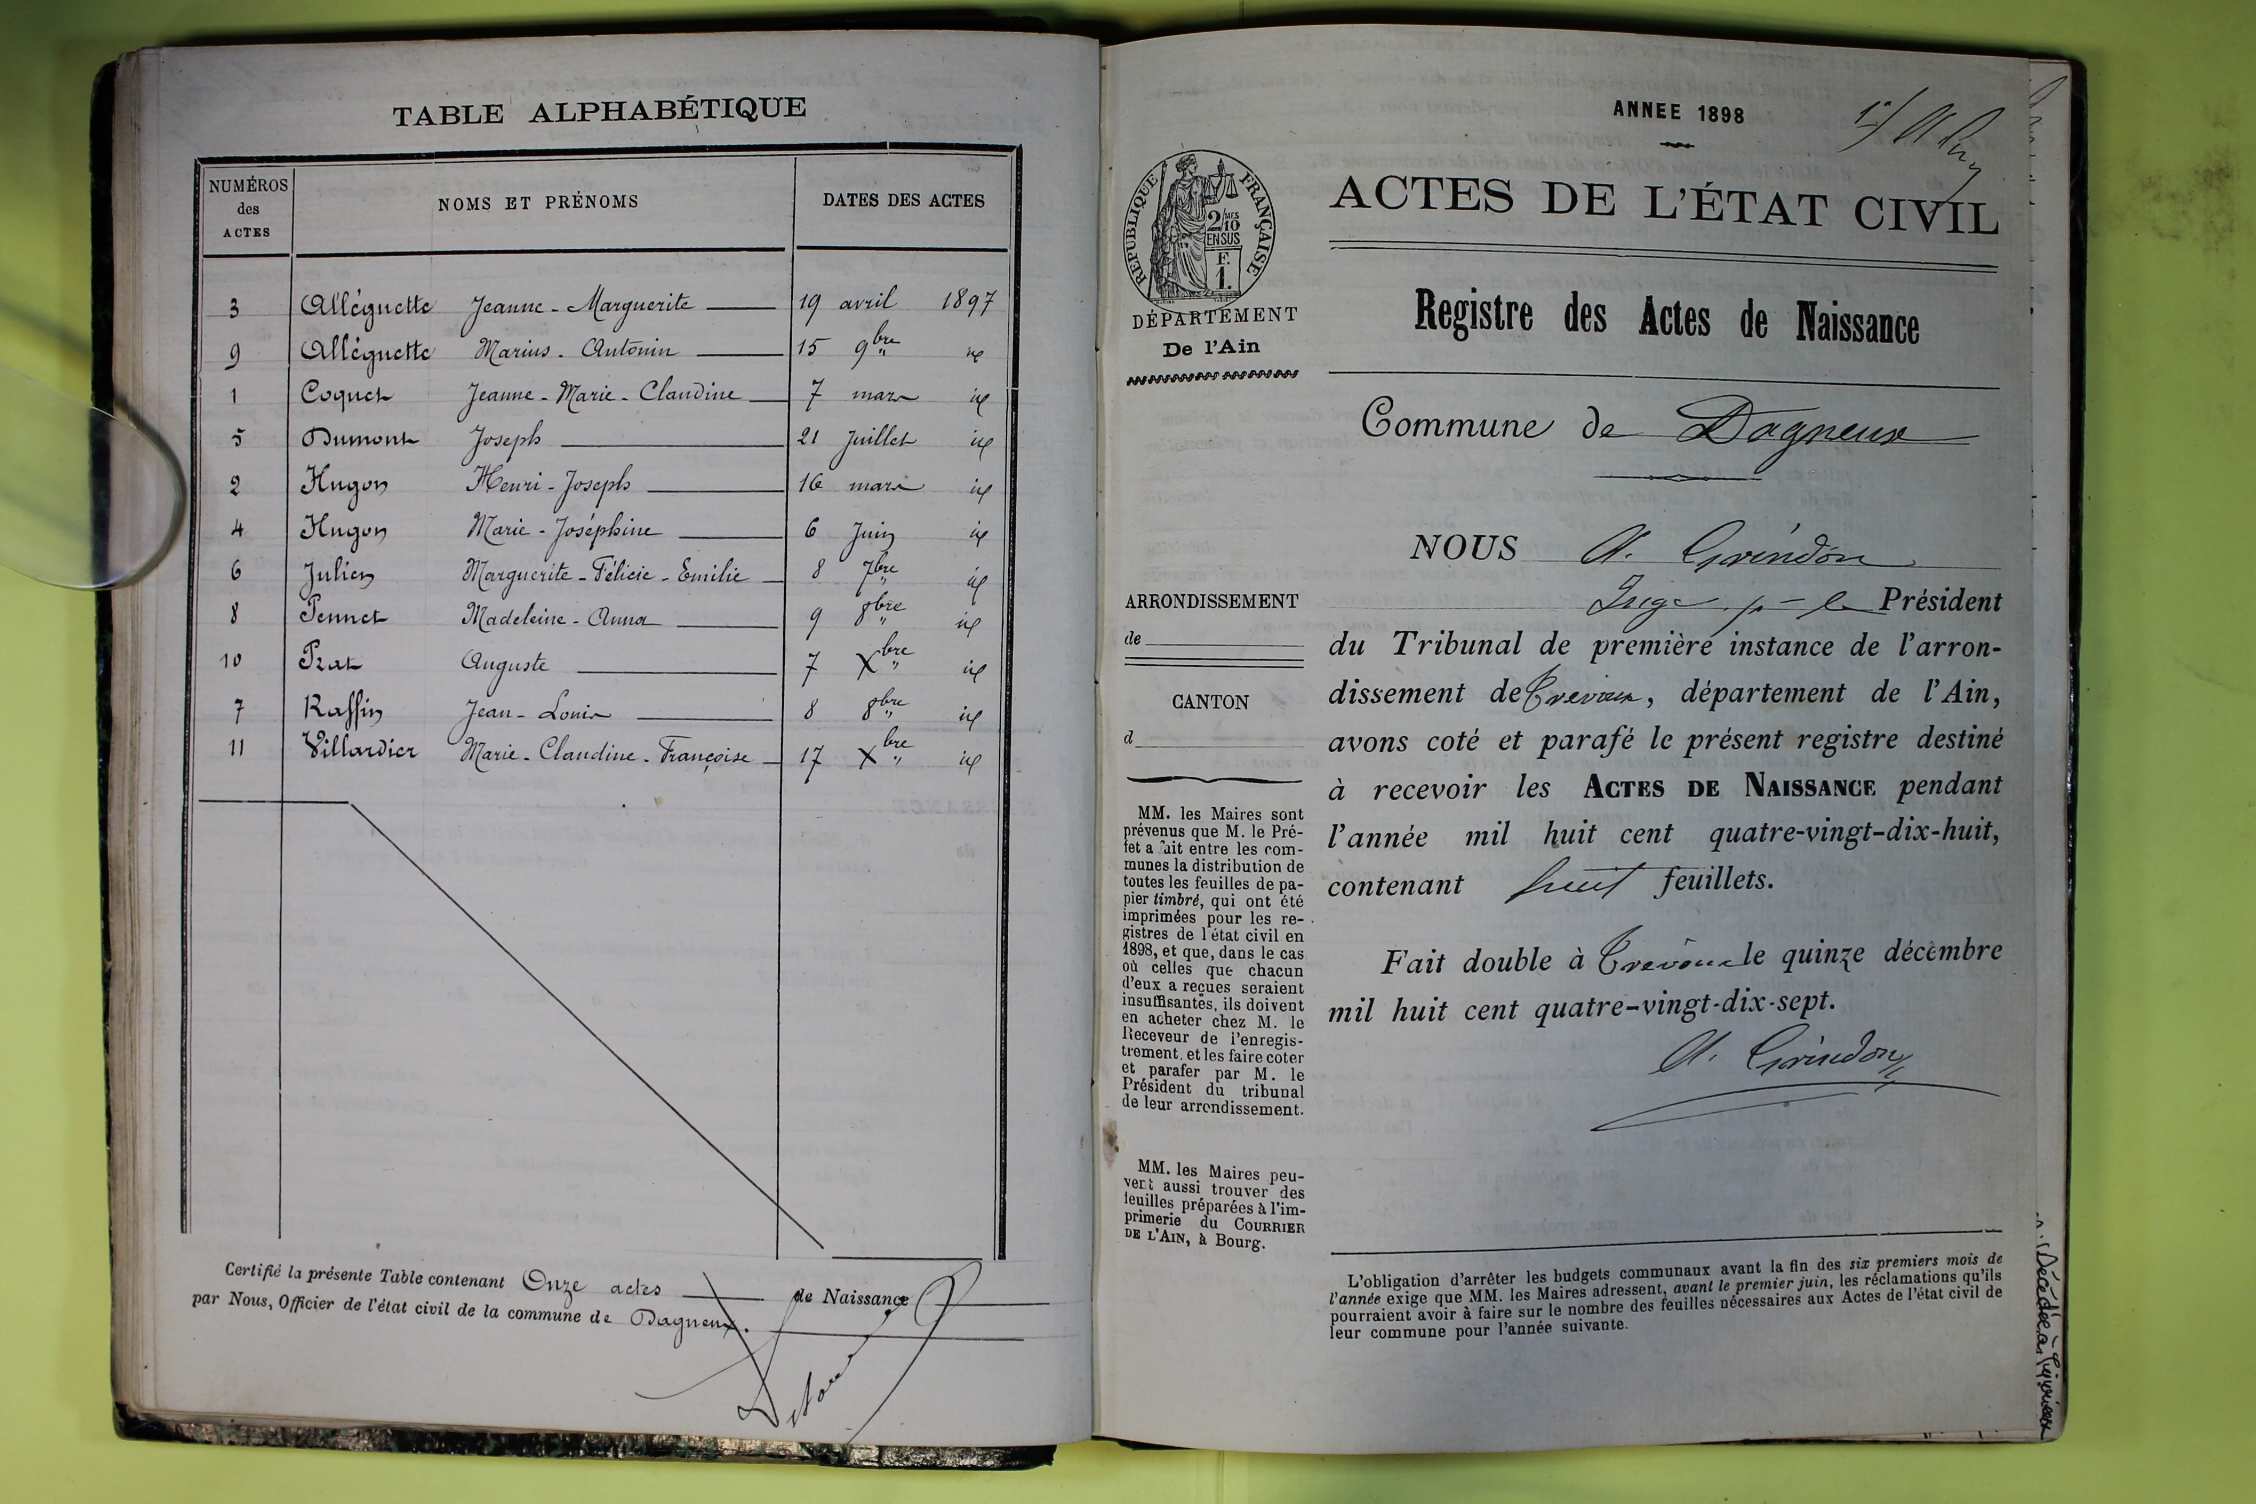 TABLE ALPHABÉTIQUE
NUMÉROS des ACTES NOMS ET PRÉNOMS DATES DES ACTES
3 Alléguette Jeanne - Marguerite 19 avril 1897
9 Alléguette Marius - Antonin 15 9bre id
1 Coquet Jeanne - Marie - Claudine 7 mars id
5 Dumont Joseph 21 Juillet id
2 Hugon Henri - Joseph 16 mars id
4 Hugon Marie - Joséphine 6 Juin id
6 Julien Marguerite - Félicie - Emilie 8 7bre id
8 Pennet Madeleine - Anna 9 8bre id
10 Prat Auguste 7 Xbre id
7 Raffin Jean - Louis 8 8bre id
11 Villardier Marie - Claudine - Françoise 17 Xbre id
Certifié la présente Table contenant Onze actes de Naissance
par Nous, Officier de l'état civil de la commune de Dagneux.
ANNEE 1898
RÉPUBLIQUE FRANÇAISE
2/10 MES
EN SUS
F.
1.
DÉPARTEMENT
De l'Ain
ARRONDISSEMENT
de
CANTON
d
MM. les Maires sont
prévenus que M. le Pré-
fet a fait entre les com-
munes la distribution de
toutes les feuilles de pa-
pier timbré, qui ont été
imprimées pour les re-
gistres de l'état civil en
1898, et que, dans le cas
où celles que chacun
d'eux a reçues seraient
insuffisantes, ils doivent
en acheter chez M. le
Receveur de l'enregis-
trement, et les faire coter
et parafer par M. le
Président du tribunal
de leur arrondissement.
MM. les Maires peu-
vent aussi trouver des
feuilles préparées à l'im-
primerie du COURRIER
DE L'AIN, à Bourg.
ACTES DE L'ÉTAT CIVIL
Registre des Actes de Naissance
Commune de Dagneux
NOUS A. Grindon
Juge p. le Président
du Tribunal de première instance de l'arron-
dissement de Trevoux, département de l'Ain,
avons coté et parafé le présent registre destiné
à recevoir les ACTES DE NAISSANCE pendant
l'année mil huit cent quatre-vingt-dix-huit,
contenant huit feuillets.
Fait double à Trevoux le quinze décembre
mil huit cent quatre-vingt-dix-sept.
A. Grindon
L'obligation d'arrêter les budgets communaux avant la fin des six premiers mois de
l'année exige que MM. les Maires adressent, avant le premier juin, les réclamations qu'ils
pourraient avoir à faire sur le nombre des feuilles nécessaires aux Actes de l'état civil de
leur commune pour l'année suivante.